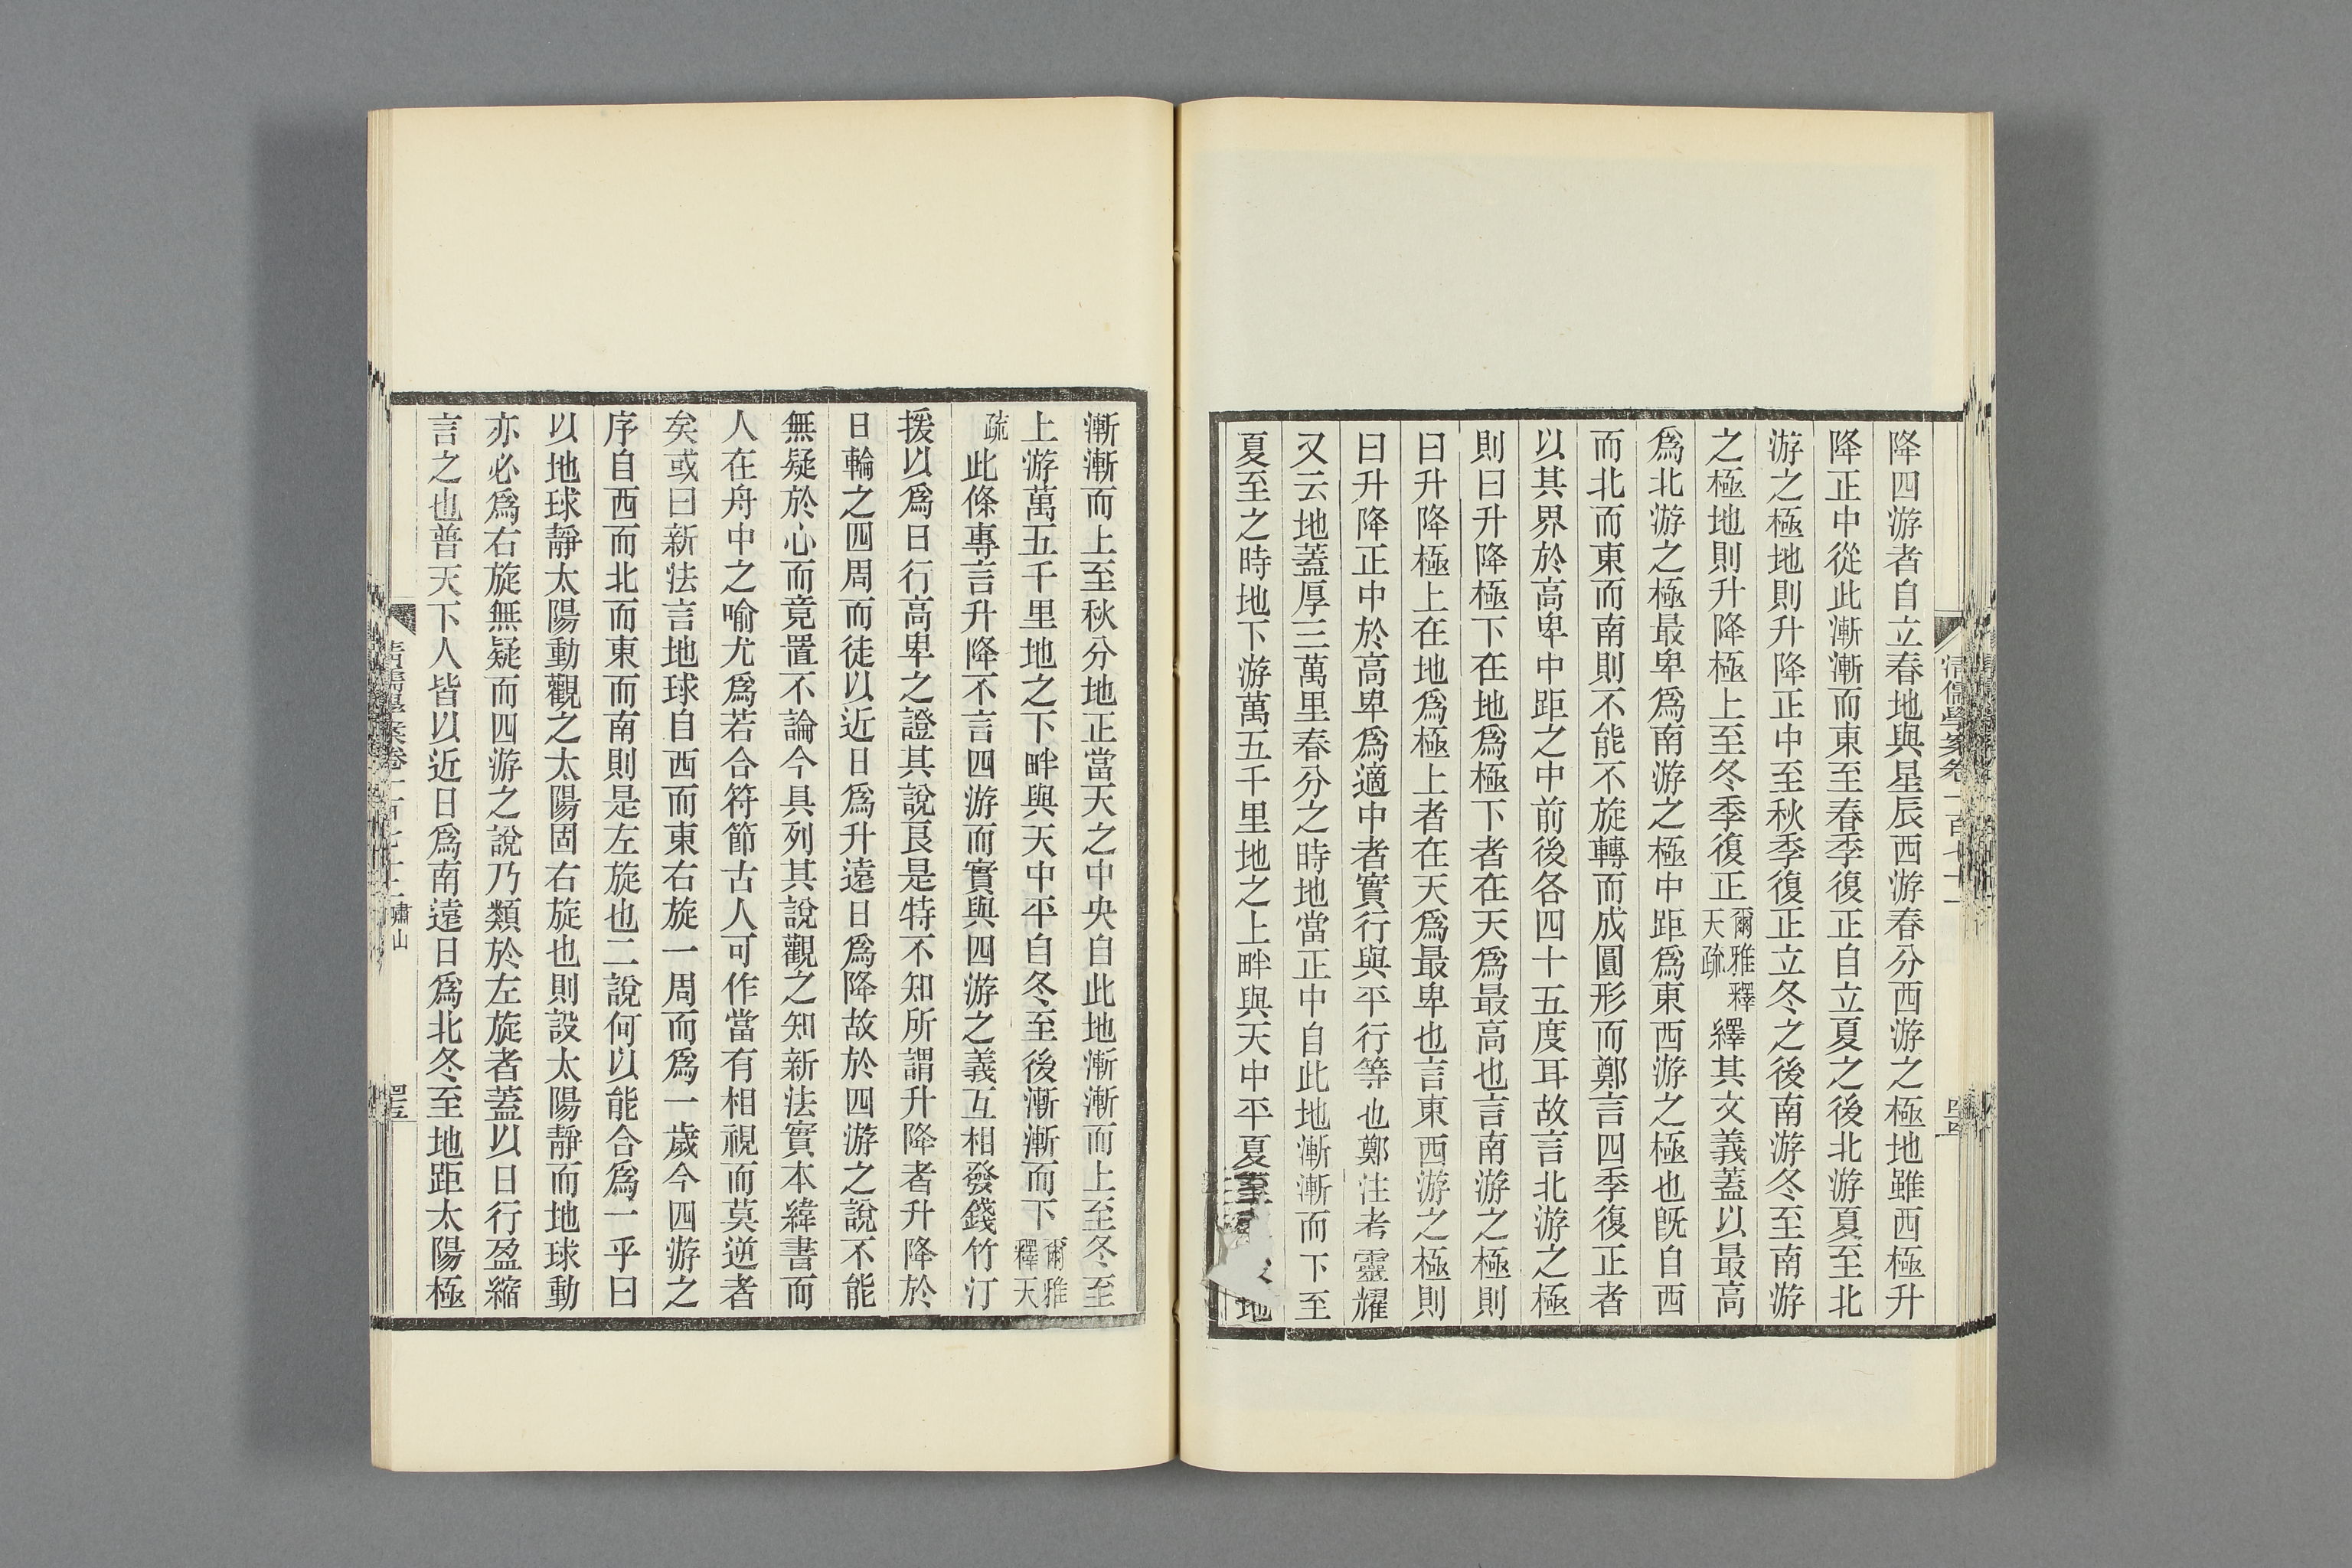 降四游者自立春地與星辰西游春分西游之極地雖西極升
降正中從此漸漸而東至春季復正自立夏之後北游夏至北
游之極地則升降正中至秋季復正立冬之後南游冬至南游
之極地則升降極上至冬季復正爾雅釋天疏繹其文義蓋以最高
爲北游之極最卑爲南游之極中距爲東西游之極也旣自西
而北而東而南則不能不旋轉而成圓形而鄭言四季復正者
以其界於高卑中距之中前後各四十五度耳故言北游之極
則曰升降極下在地爲極下者在天爲最高也言南游之極則
曰升降極上在地爲極上者在天爲最卑也言東西游之極則
曰升降正中於高卑爲適中者實行與平行等也鄭注考靈耀
又云地蓋厚三萬里春分之時地當正中自此地漸漸而下至
夏至之時地下游萬五千里地之上畔與天中平夏至地
清儒學案卷一百七十一
漸漸而上至秋分地正當天之中央自此地漸漸而上至冬至
上游萬五千里地之下畔與天中平自冬至後漸漸而下爾雅釋天
疏此條專言升降不言四游而實與四游之義互相發錢竹汀
援以爲日行高卑之證其說良是特不知所謂升降者升降於
日輪之四周而徒以近日爲升遠日爲降故於四游之說不能
無疑於心而竟置不論今具列其說觀之知新法實本緯書而
人在舟中之喻尤爲若合符節古人可作當有相視而莫逆者
矣或曰新法言地球自西而東右旋一周而爲一歲今四游之
序自西而北而東而南則是左旋也二說何以能合爲一乎曰
以地球靜太陽動觀之太陽固右旋也則設太陽靜而地球動
亦必爲右旋無疑而四游之說乃類於左旋者蓋以日行盈縮
言之也普天下人皆以近日爲南遠日爲北冬至地距太陽極
嘯山